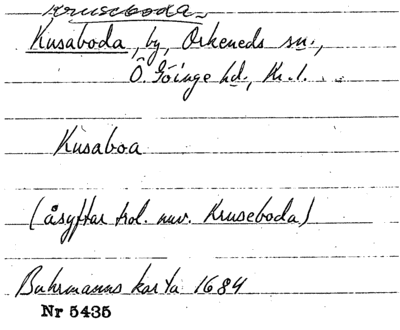 Kruseboda
Kusaboda, by, Örkeneds sn.,
Ö. Göinge hd., Kr. l.
Kusaboa
(åsyftar trol. nuv. Kruseboda)
Buhrmanns karta 1684
Nr 5435